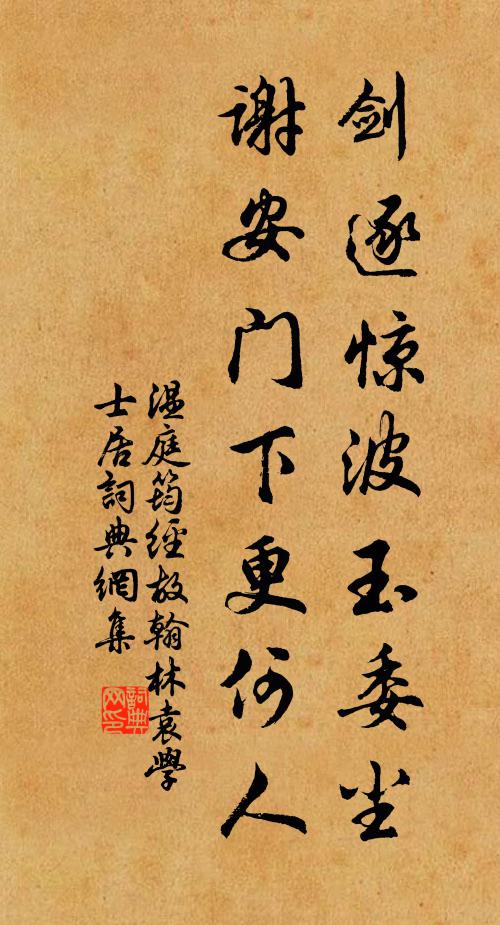 剑逐惊波玉委尘
谢安门下更何人
温庭筠经故翰林袁學
士居詞典網集
詞典网印